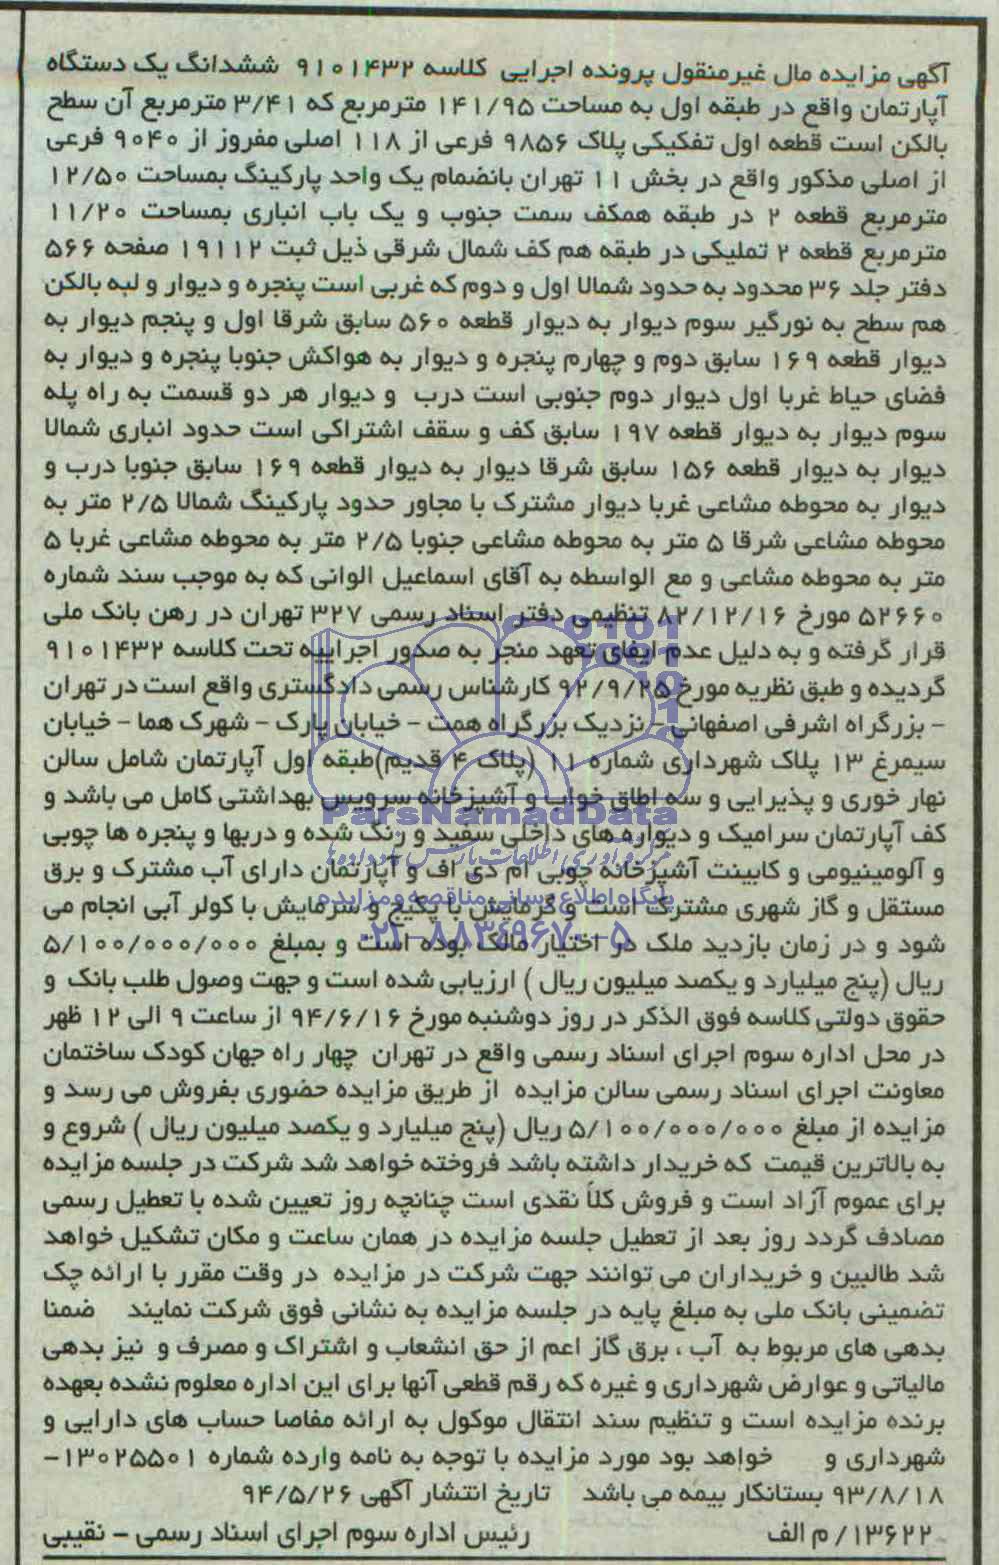 آگهی مزایده مال غیرمنقول پرونده اجرایی کلاسه ۹۱۰۱۴۳۲ ششدانگ یک دستگاه
آپارتمان واقع در طبقه اول به مساحت ۱۴۱/۹۵ مترمربع که ۳/۴۱ مترمربع آن سطح
بالکن است قطعه اول تفکیکی پلاک ۹۸۵۶ فرعی از ۱۱۸ اصلی مفروز از ۹۰۴۰ فرعی
از اصلی مذکور واقع در بخش ۱۱ تهران بانضمام یک واحد پارکینگ بمساحت ۱۲/۵۰
مترمربع قطعه ۲ در طبقه همکف سمت جنوب و یک باب انباری بمساحت ۱۱/۲۰
مترمربع قطعه ۲ تملیکی در طبقه هم کف شمال شرقی ذیل ثبت ۱۹۱۱۲ صفحه ۵۶۶
دفتر جلد ۳۶ محدود به حدود شمالا اول و دوم که غربی است پنجره و دیوار و لبه بالکن
هم سطح به نورگیر سوم دیوار به دیوار قطعه ۵۶۰ سابق شرقا اول و پنجم دیوار به
دیوار قطعه ۱۶۹ سابق دوم و چهارم پنجره و دیوار به هواکش جنوبا پنجره و دیوار به
فضای حیاط غربا اول دیوار دوم جنوبی است درب و دیوار هر دو قسمت به راه پله
سوم دیوار به دیوار قطعه ۱۹۷ سابق کف و سقف اشتراکی است حدود انباری شمالا
دیوار به دیوار قطعه ۱۵۶ سابق شرقا دیوار به دیوار قطعه ۱۶۹ سابق جنوبا درب و
دیوار به محوطه مشاعی غربا دیوار مشترک با مجاور حدود پارکینگ شمالا ۲/۵ متر به
محوطه مشاعی شرقا ۵ متر به محوطه مشاعی جنوبا ۲/۵ متر به محوطه مشاعی غربا ۵
متر به محوطه مشاعی و مع الواسطه به آقای اسماعیل الوانی که به موجب سند شماره
۵۲۶۶۰ مورخ ۸۲/۱۲/۱۶ تنظیمی دفتر اسناد رسمی ۳۲۷ تهران در رهن بانک ملی
قرار گرفته و به دلیل عدم ایفای تعهد منجر به صدور اجراییه تحت کلاسه ۹۱۰۱۴۳۲
گردیده و طبق نظریه مورخ ۹۲/۹/۲۵ کارشناس رسمی دادگستری واقع است در تهران
- بزرگراه اشرفی اصفهانی - نزدیک بزرگراه همت - خیابان پارک - شهرک هما - خیابان
سیمرغ ۱۳ پلاک شهرداری شماره ۱۱ (پلاک ۴ قدیم)طبقه اول آپارتمان شامل سالن
نهار خوری و پذیرایی و سه اطاق خواب و آشپزخانه سرویس بهداشتی کامل می باشد و
ParsNamadData
کف آپارتمان سرامیک و دیواره های داخلی سفید و رنگ شده و دربها و پنجره ها چوبی
و آلومینیومی و کابینت آشپزخانه چوبی ام دی اف و آپارتمان دارای آب مشترک و برق
پایگاه اطلاع رسانی مناقصه و مزایده
مستقل و گاز شهری مشترک است و گرمایش با پکیج و سرمایش با کولر آبی انجام می
۰۲۱-۸۸۳۴۹۶۷۰-۵
شود و در زمان بازدید ملک در اختیار مالک بوده است و بمبلغ ۵/۱۰۰/۰۰۰/۰۰۰
ریال (پنج میلیارد و یکصد میلیون ریال ) ارزیابی شده است و جهت وصول طلب بانک و
حقوق دولتی کلاسه فوق الذکر در روز دوشنبه مورخ ۹۴/۶/۱۶ از ساعت ۹ الی ۱۲ ظهر
در محل اداره سوم اجرای اسناد رسمی واقع در تهران چهار راه جهان کودک ساختمان
معاونت اجرای اسناد رسمی سالن مزایده از طریق مزایده حضوری بفروش می رسد و
مزایده از مبلغ ۵/۱۰۰/۰۰۰/۰۰۰ ریال (پنج میلیارد و یکصد میلیون ریال ) شروع و
به بالاترین قیمت که خریدار داشته باشد فروخته خواهد شد شرکت در جلسه مزایده
برای عموم آزاد است و فروش کلاً نقدی است چنانچه روز تعیین شده با تعطیل رسمی
مصادف گردد روز بعد از تعطیل جلسه مزایده در همان ساعت و مکان تشکیل خواهد
شد طالبین و خریداران می توانند جهت شرکت در مزایده در وقت مقرر با ارائه چک
تضمینی بانک ملی به مبلغ پایه در جلسه مزایده به نشانی فوق شرکت نمایند ضمنا
بدهی های مربوط به آب ، برق گاز اعم از حق انشعاب و اشتراک و مصرف و نیز بدهی
مالیاتی و عوارض شهرداری و غیره که رقم قطعی آنها برای این اداره معلوم نشده بعهده
برنده مزایده است و تنظیم سند انتقال موکول به ارائه مفاصا حساب های دارایی و
شهرداری و خواهد بود مورد مزایده با توجه به نامه وارده شماره ۱۳۰۲۵۵۰۱-
۹۳/۸/۱۸ بستانکار بیمه می باشد تاریخ انتشار آگهی ۹۴/۵/۲۶
۱۳۶۲۲/ م الف رئیس اداره سوم اجرای اسناد رسمی - نقیبی